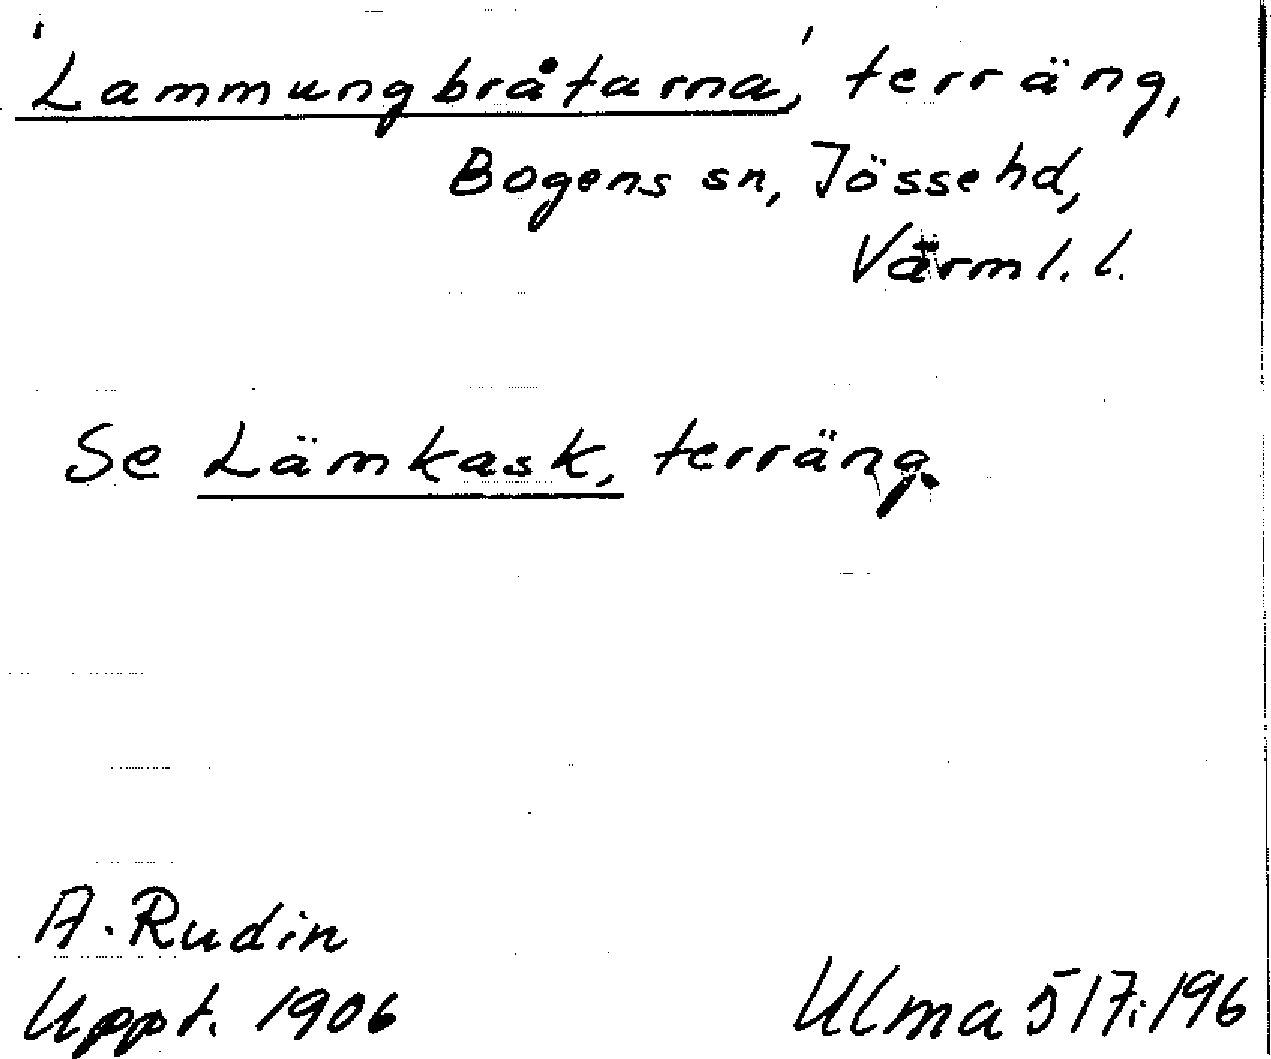 'Lammungbråtarna', terräng,
Bogens sn, Jösse hd,
Värml. l.
Se Lämkask, terräng.
A. Rudin
Uppt. 1906
Ulma 517:196